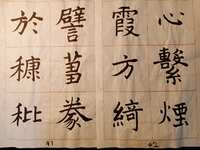 心繫煙
霞方綺
譬豢
於穅秕
42
41